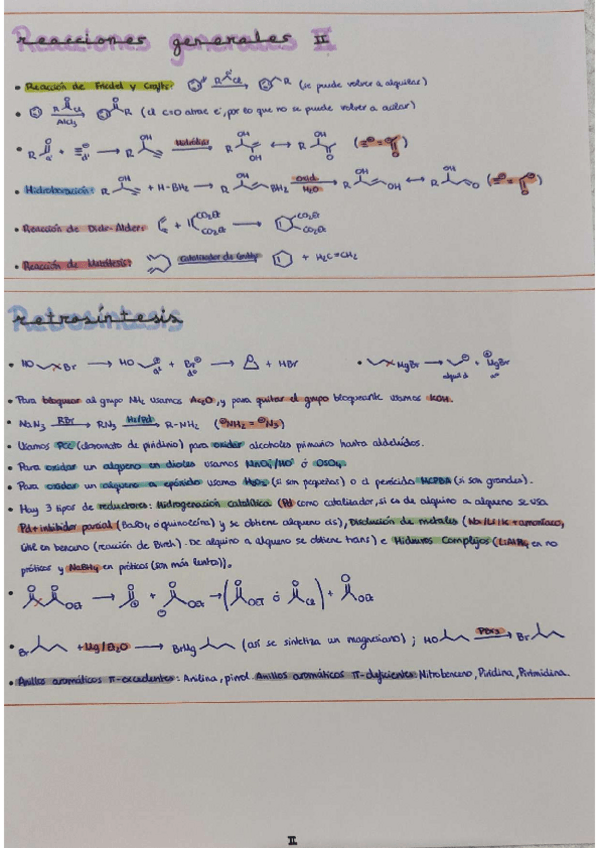 Reacciones generales II
• Reacción de Friedel y Crafts: (se puede volver a alquilar)
• R Cl AlCl₃ R (el C=O atrae e⁻, por lo que no se puede volver a acilar)
• R + → OH R Hidrólisis OH R OH ↔ OH R O
• Hidroboración: OH R + H-BH₂ → OH R BH₂ Oxid. H₂O OH R OH ↔ OH R O
• Reacción de Diels-Alder: + CO₂Et CO₂Et → CO₂Et CO₂Et
• Reacción de Metátesis: Catalizador de Grubbs + H₂C=CH₂
Retrosíntesis
• HO Br → HO + Br → + HBr • MgBr → + MgBr
• Para bloquear al grupo NH₂ usamos Ac₂O, y para quitar el grupo bloqueante usamos KOH.
• NaN₃ RBr → RN₃ H₂/Pd → R-NH₂ (⊖NH₂ = ⊖N₃)
• Usamos PCC (clorocromato de piridinio) para oxidar alcoholes primarios hasta aldehídos.
• Para oxidar un alqueno en dioles usamos MnO₄⁻/HO⁻ ó OsO₄.
• Para oxidar un alqueno a epóxido usamos H₂O₂ (si son pequeñas) o el perácido MCPBA (si son grandes).
• Hay 3 tipos de reductores: Hidrogenación catalítica (Pd como catalizador, si es de alquino a alqueno se usa
Pd + inhibidor parcial (BaSO₄ ó quinoleína) y se obtiene alqueno cis), Disolución de metales (Na/Li/K + amoníaco,
en benceno (reacción de Birch). De alquino a alqueno se obtiene trans) e Hidruros Complejos (LiAlH₄ en no
próticos y NaBH₄ en próticos (son más lentos)).
• O O OEt → O + O OEt → (O OEt ó O Cl) + O OEt
• Br + Mg/Et₂O → BrMg (así se sintetiza un magnesiano) ; HO PBr₃ → Br
• Anillos aromáticos π-excedentes: Anilina, pirrol. Anillos aromáticos π-deficientes: Nitrobenceno, Piridina, Pirimidina.
II